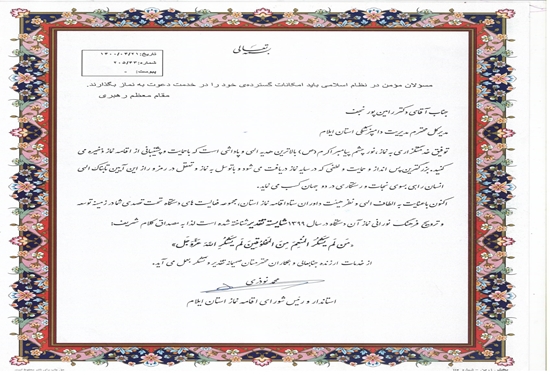 بسمه تعالی
تاریخ: ۱۴۰۰/۰۴/۲۱
شماره: ۲۰۵/۴۴
پیوست:
مسولان مؤمن در نظام اسلامی باید امکانات گسترده‌ی خود را در خدمت دعوت به نماز بگذارند.
مقام معظم رهبری
جناب آقای دکتر رامین پور نجف
مدیرکل محترم مدیریت و دامپزشکی استان ایلام
توفیق خدمتگزاری به نماز، نور چشم پیامبر اکرم (ص) بالاترین هدیه الهی و پاداشی است که با حمایت و پشتیبانی از اقامه نماز ذخیره می
کنید. بزرگترین پس انداز و حمایت و لطفی که در سایه نماز دریافت می شود و با توسل به نماز و تعقل در رمز و راز این آیین تابناک الهی
انسان راهی بسوی نجات و رستگاری در دو جهان کسب می نماید.
اکنون با عنایت به الطاف الهی و نظر هیئت داوران ستاد اقامه نماز استان، مجموعه فعالیت های دستگاه تحت تصدی شما در زمینه توسعه
و ترویج فرهنگ نورانی نماز آن دستگاه در سال ۱۳۹۹ شایسته تقدیر شناخته شده است لذا به مصداق کلام شریف:
«مَن لَم یَشکُرِ المُنعِمَ مِنَ المَخلوقینَ لَم یَشکُرِ اللهَ عَزَّوَجَلَّ»
از خدمات ارزنده جنابعالی و همکاران محترمتان صمیمانه تقدیر و تشکر بعمل می آید.
محمد نوذری
استاندار و رئیس شورای اقامه نماز استان ایلام